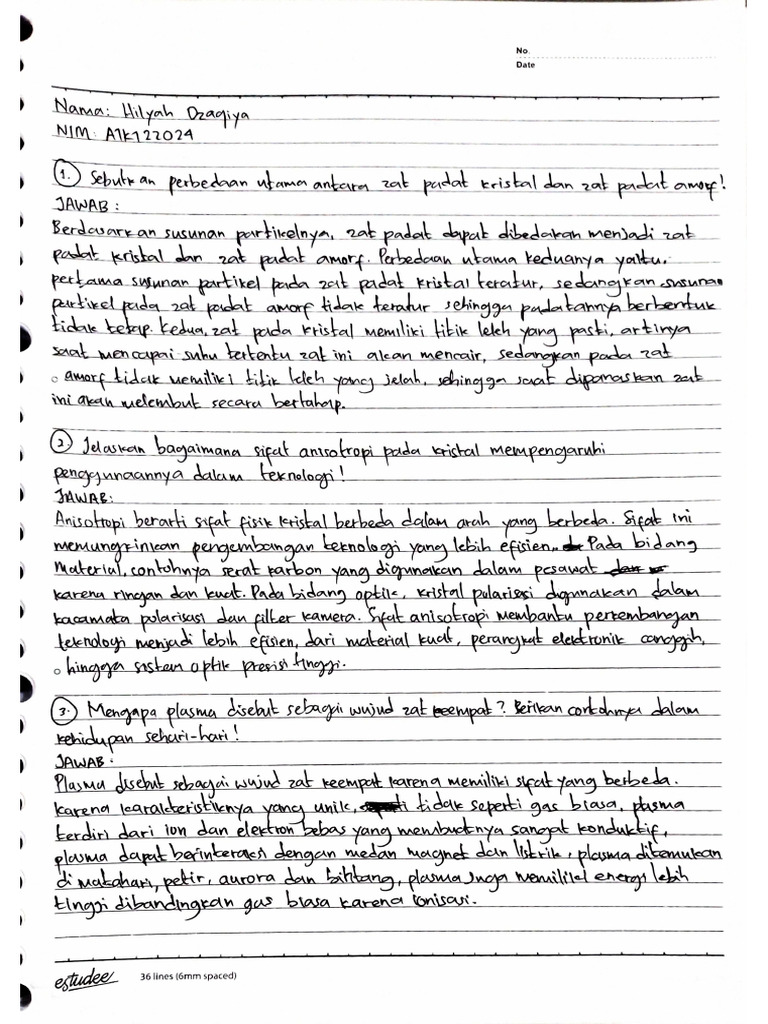 No.
Date
Nama: Hilyah Dzaqiya
NIM: A1K122024
1. Sebutkan perbedaan utama antara zat padat kristal dan zat padat amorf!
JAWAB:
Berdasarkan susunan partikelnya, zat padat dapat dibedakan menjadi zat
padat kristal dan zat padat amorf. Perbedaan utama keduanya yaitu,
pertama susunan partikel pada zat padat kristal teratur, sedangkan susunan
partikel pada zat padat amorf tidak teratur sehingga padatannya berbentuk
tidak tetap. Kedua, zat pada kristal memiliki titik leleh yang pasti, artinya
saat mencapai suhu tertentu zat ini akan mencair, sedangkan pada zat
amorf tidak memiliki titik leleh yang jelah, sehingga saat dipanaskan zat
ini akan melembut secara bertahap.
2. Jelaskan bagaimana sifat anisotropi pada kristal mempengaruhi
penggunaannya dalam teknologi!
JAWAB:
Anisotropi berarti sifat fisik kristal berbeda dalam arah yang berbeda. Sifat ini
memungkinkan pengembangan teknologi yang lebih efisien. Pada bidang
material, contohnya serat karbon yang digunakan dalam pesawat
karena ringan dan kuat. Pada bidang optik, kristal polarisasi digunakan dalam
kacamata polarisasi dan filter kamera. Sifat anisotropi membantu perkembangan
teknologi menjadi lebih efisien, dari material kuat, perangkat elektronik canggih,
hingga sistem optik presisi tinggi.
3. Mengapa plasma disebut sebagai wujud zat keempat? Berikan contohnya dalam
kehidupan sehari-hari!
JAWAB:
Plasma disebut sebagai wujud zat keempat karena memiliki sifat yang berbeda.
karena karakteristiknya yang unik, tidak seperti gas biasa, plasma
terdiri dari ion dan elektron bebas yang membuatnya sangat konduktif,
plasma dapat berinteraksi dengan medan magnet dan listrik, plasma ditemukan
di matahari, petir, aurora dan bintang, plasma juga memiliki energi lebih
tinggi dibandingkan gas biasa karena ionisasi.
estudee 36 lines (6mm spaced)